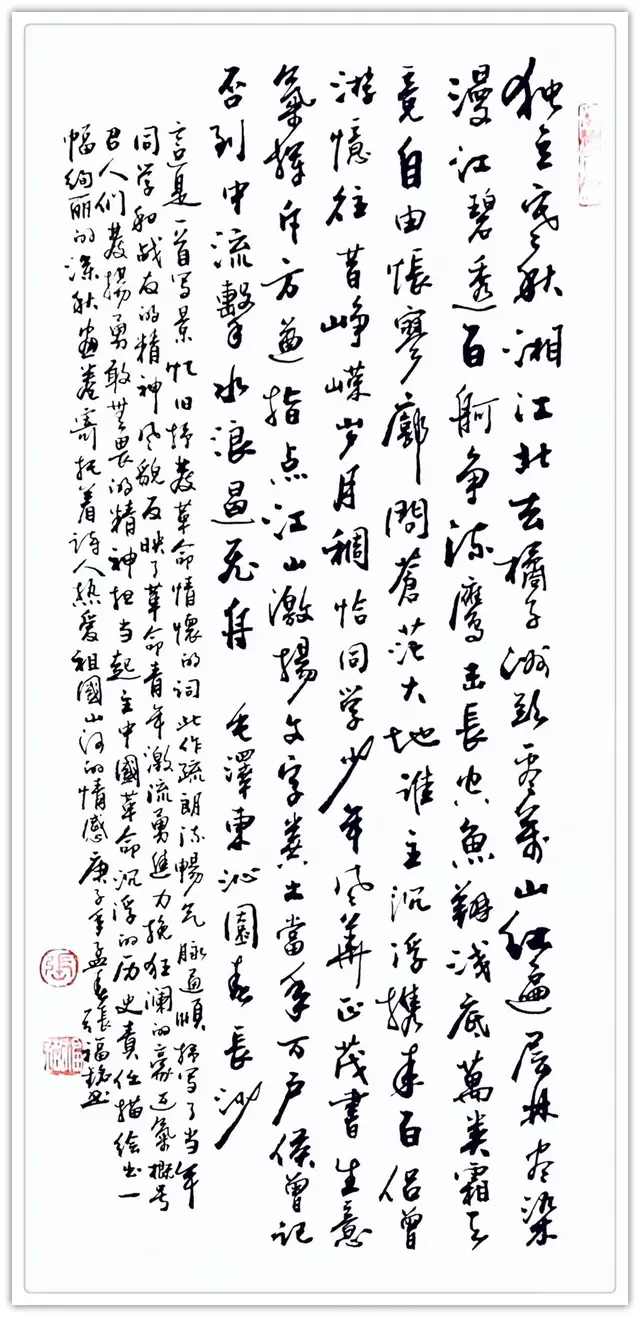 独立寒秋湘江北去橘子洲头看万山红遍层林尽染
漫江碧透百舸争流鹰击長空魚翔浅底萬类霜天
竞自由怅寥廓問蒼茫大地谁主沉浮携来百侣曾
游憶往昔峥嵘岁月稠恰同学少年风華正茂書生意
氣挥斥方遒指点江山激揚文字粪土當年万户侯曾记
否到中流擊水浪遏飞舟 毛澤東沁園春長沙
這是一首写景忆旧抒发革命情懷的词此作疏朗流暢气脉通順描写了当年
同学和战友的精神风貌反映了革命青年激流勇進力挽狂澜的豪迈氣概号
召人们發揚勇敢無畏的精神担当起主中國革命沉浮的历史責任描绘出一
幅绚丽的深秋画卷寄托着詩人熱爱祖國山河的情感庚子年孟春張福